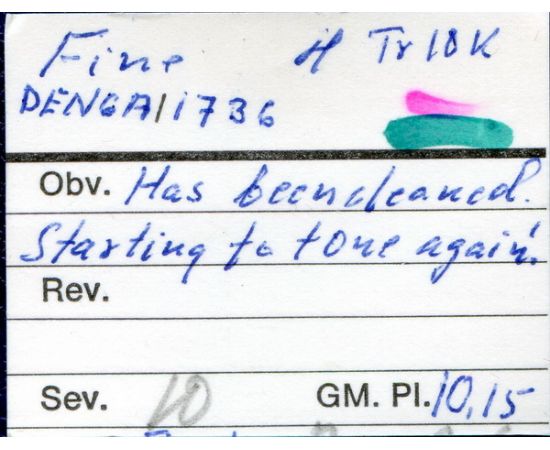 Fine H Tr 10 K
DENGA 1736
Obv. Has been cleaned.
Starting to tone again.
Rev.
Sev. 10 GM. Pl. 10,15